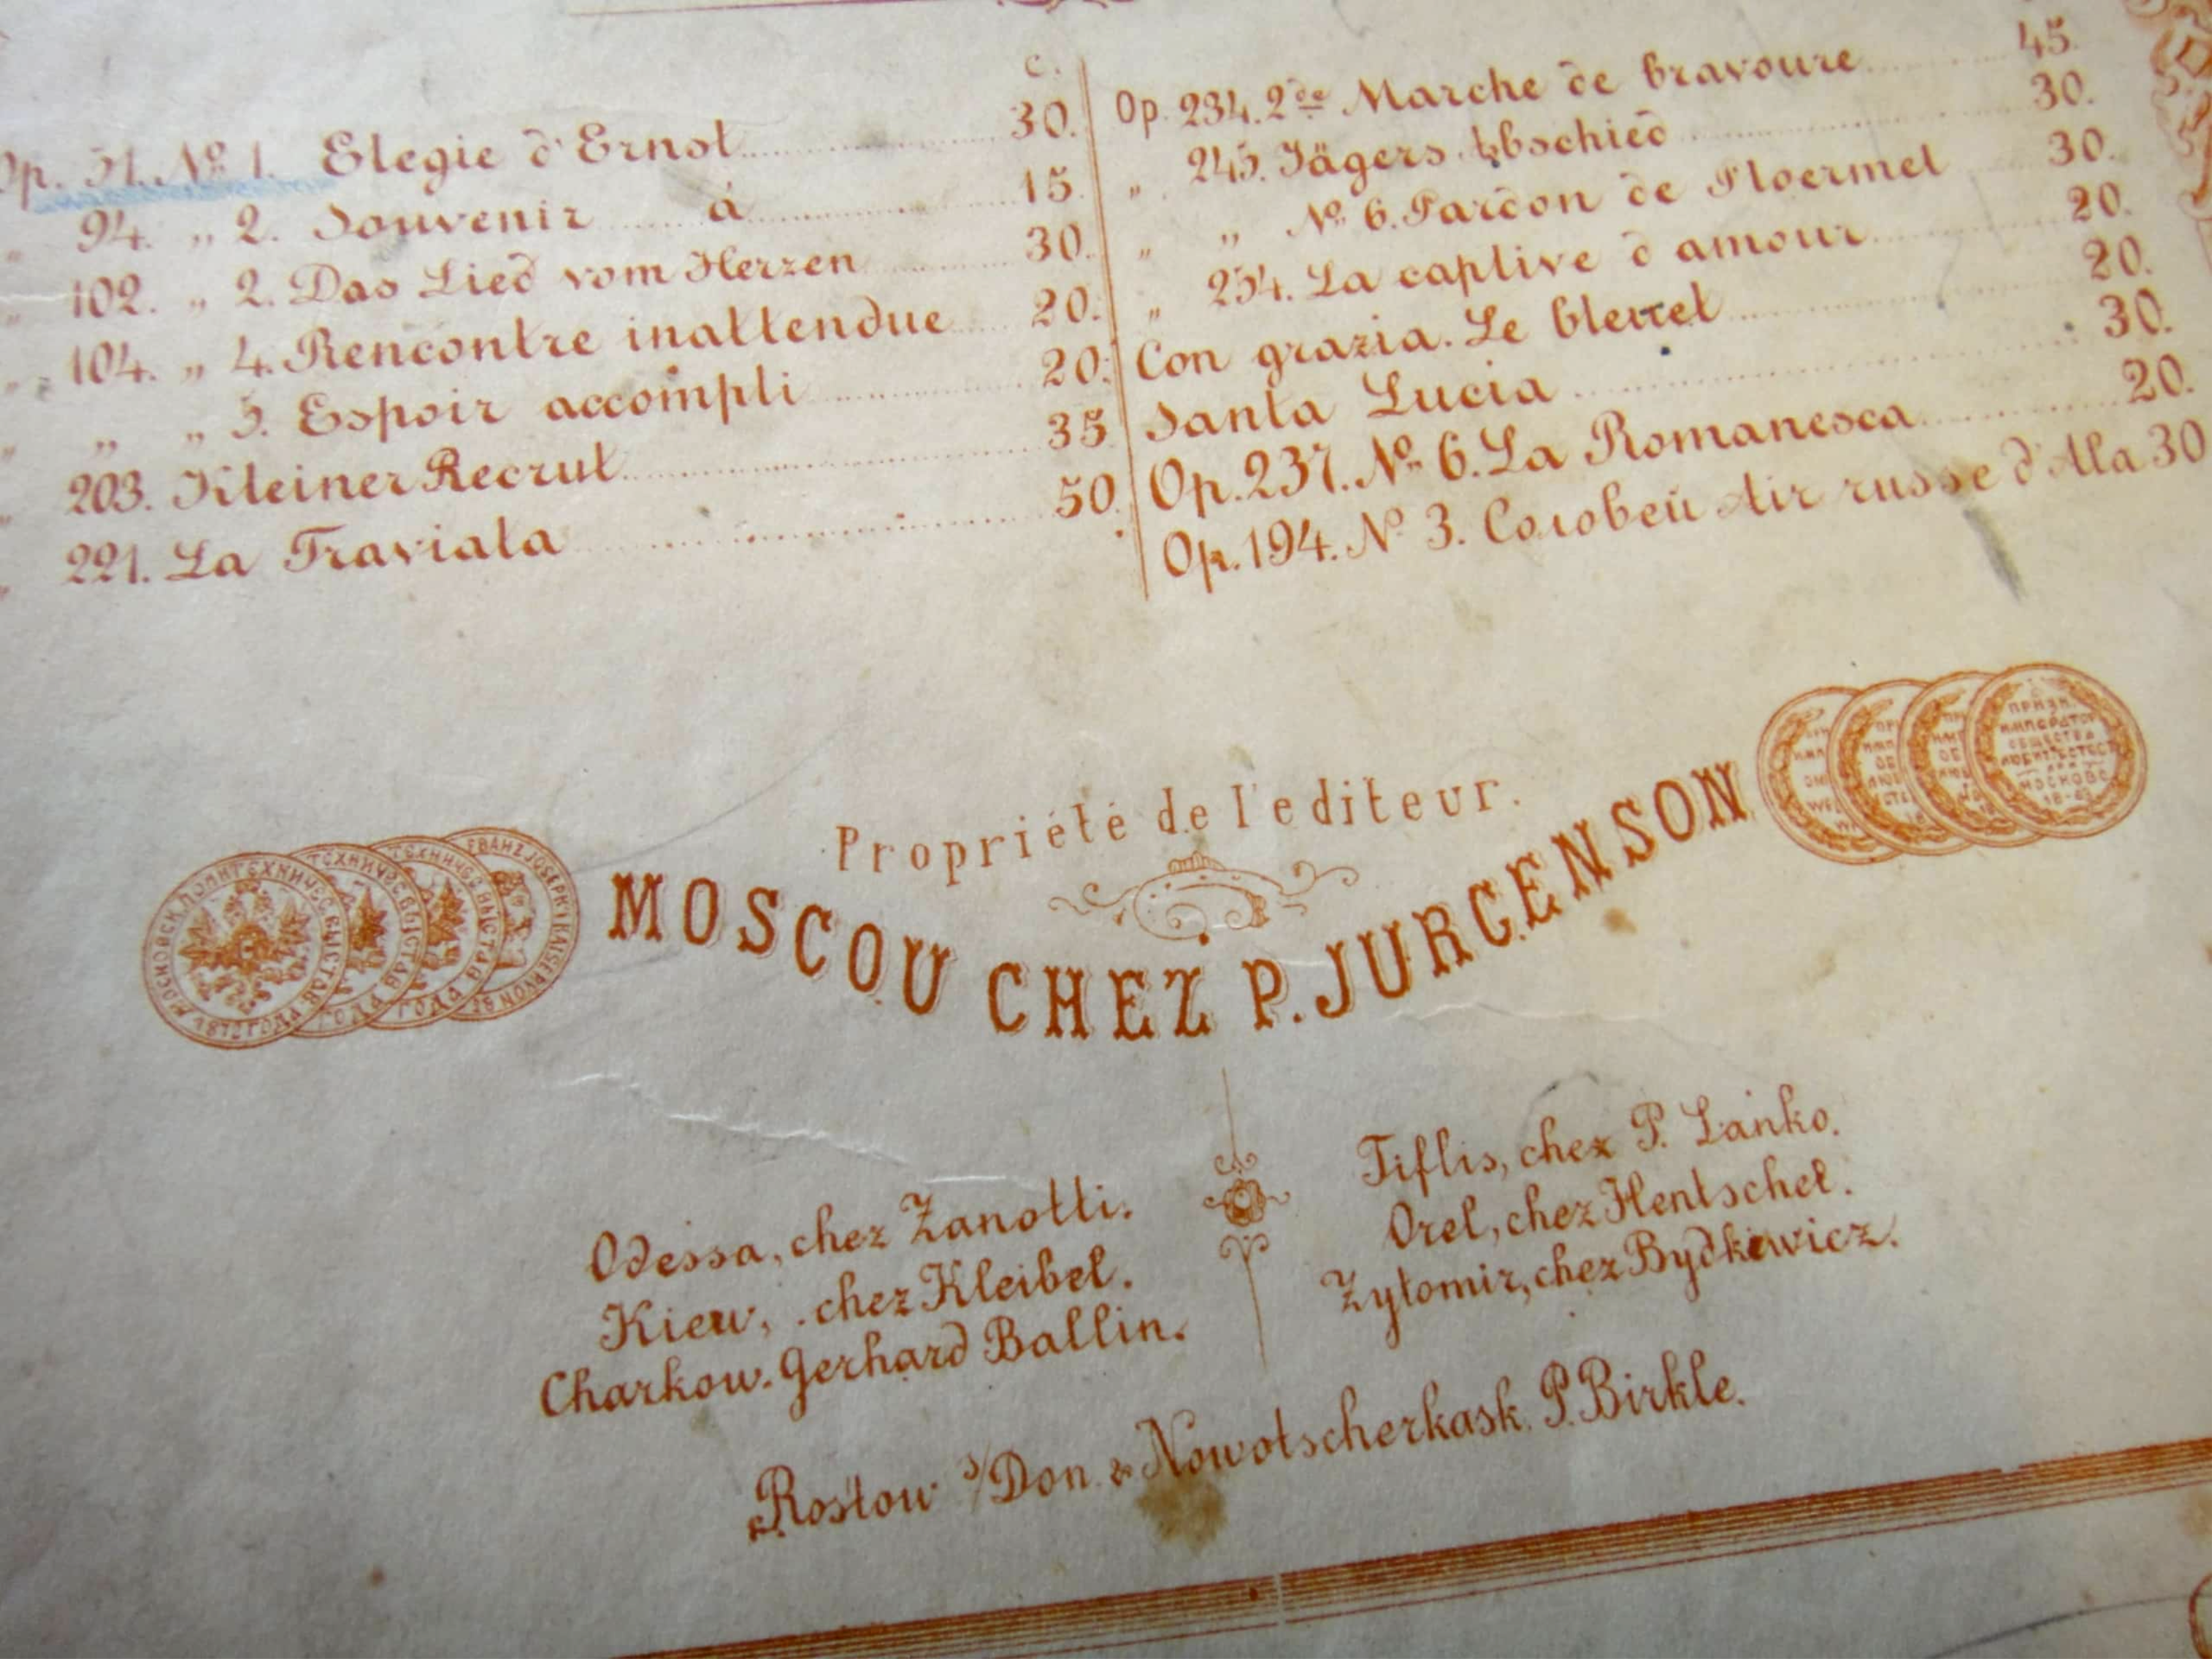 c.
Op. 51. No. 1. Elegie d'Ernst 30.
„ 94. „ 2. Souvenir à 15.
„ 102. „ 2. Das Lied vom Herzen 30.
„ 104. „ 4. Rencontre inattendue 20.
„ „ „ 5. Espoir accompli 20.
„ 203. Kleiner Recrut 35
„ 221. La Traviata 50.
Op. 234. 2de Marche de bravoure 45.
„ 245. Jägers Abschied 30.
„ „ No. 6. Pardon de Ploermel 30.
„ 254. La captive d'amour 20.
Con grazia. Le bleuet 20.
Santa Lucia 30.
Op. 237. No. 6. La Romanesca 20.
Op. 194. No 3. Соловей Air russe d'Ala 30
Propriété de l'editeur.
MOSCOU CHEZ P. JURGENSON
МОСКОВСК. ПОЛИТЕХНИЧЕС. ВЫСТАВ. 1872 ГОДА
ТЕХНИЧЕС. ВЫСТАВ. ГОДА
ТЕХНИЧЕС. ВЫСТАВ. ГОДА
FRANZ JOSEPH I KAISER
ПРИЗН.
ИМПЕРАТОР
ОБЩЕСТВА
МОСКОВѢ
Odessa, chez Zanotti.
Kiew, chez Kleibel.
Charkow. Gerhard Ballin.
Tiflis, chez P. Lanko.
Orel, chez Hentschel.
Zytomir, chez Bydkiewicz.
Rostow s/Don. & Nowotscherkask. P. Birkle.